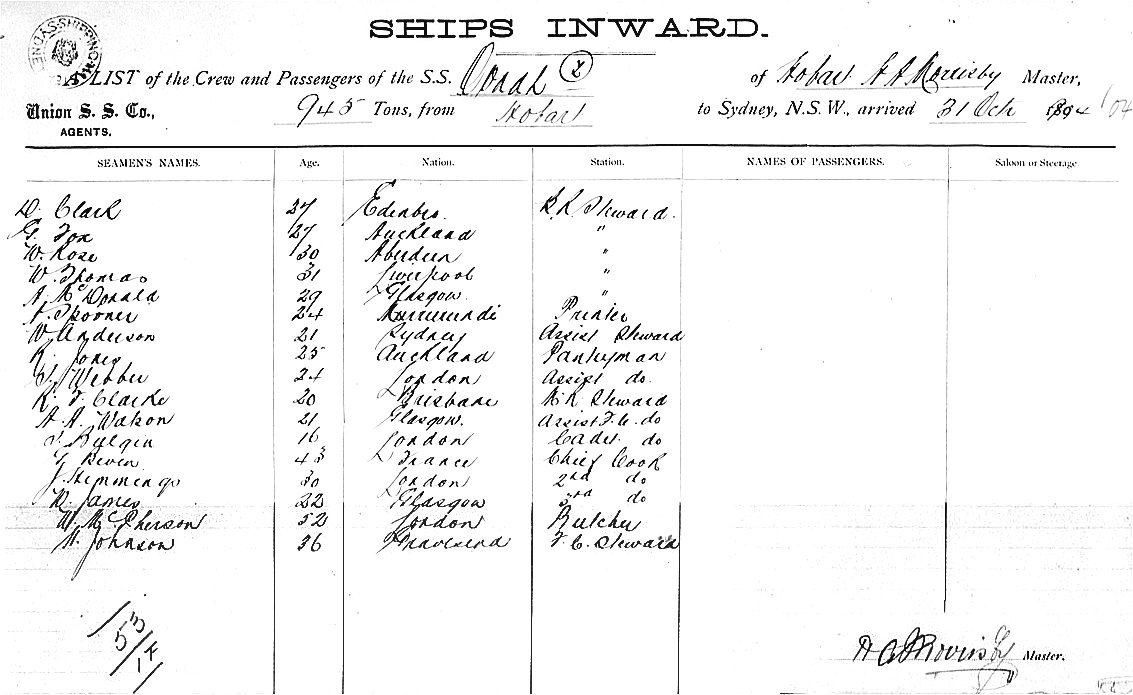 SHIPS INWARD.
LIST of the Crew and Passengers of the S.S. Oonah 2 of Hobart A A Morrisby Master,
Union S. S. Co., 945 Tons, from Hobart to Sydney, N.S.W., arrived 31 Oct 1894 /04
AGENTS.
SEAMEN'S NAMES. Age. Nation. Station. NAMES OF PASSENGERS. Saloon or Steerage
D. Clark 27 Edenbro. Steward.
G. Fox 27 Auckland "
W. Rose 30 Aberdeen "
W. Thomas 31 Liverpool "
A. McDonald 29 Glasgow. "
Spooner 24 Murrurundi Printer
W Anderson 21 Sydney Assist Steward
R. Jones 25 Auckland Pantryman
Webber 24 London Assist do.
R. F Clarke 20 Brisbane Steward
A. A. Watson 21 Glasgow. Assist F.C. do
Bulgin 16 London Cadet do
Beven 43 France Chief Cook
J. Hemmings 30 London 2nd do
R. James 22 Glasgow 3rd do
W. McPherson 52 London Butcher
Johnson 36 Gravesend F. C. Steward
53/17
Morrisby Master.